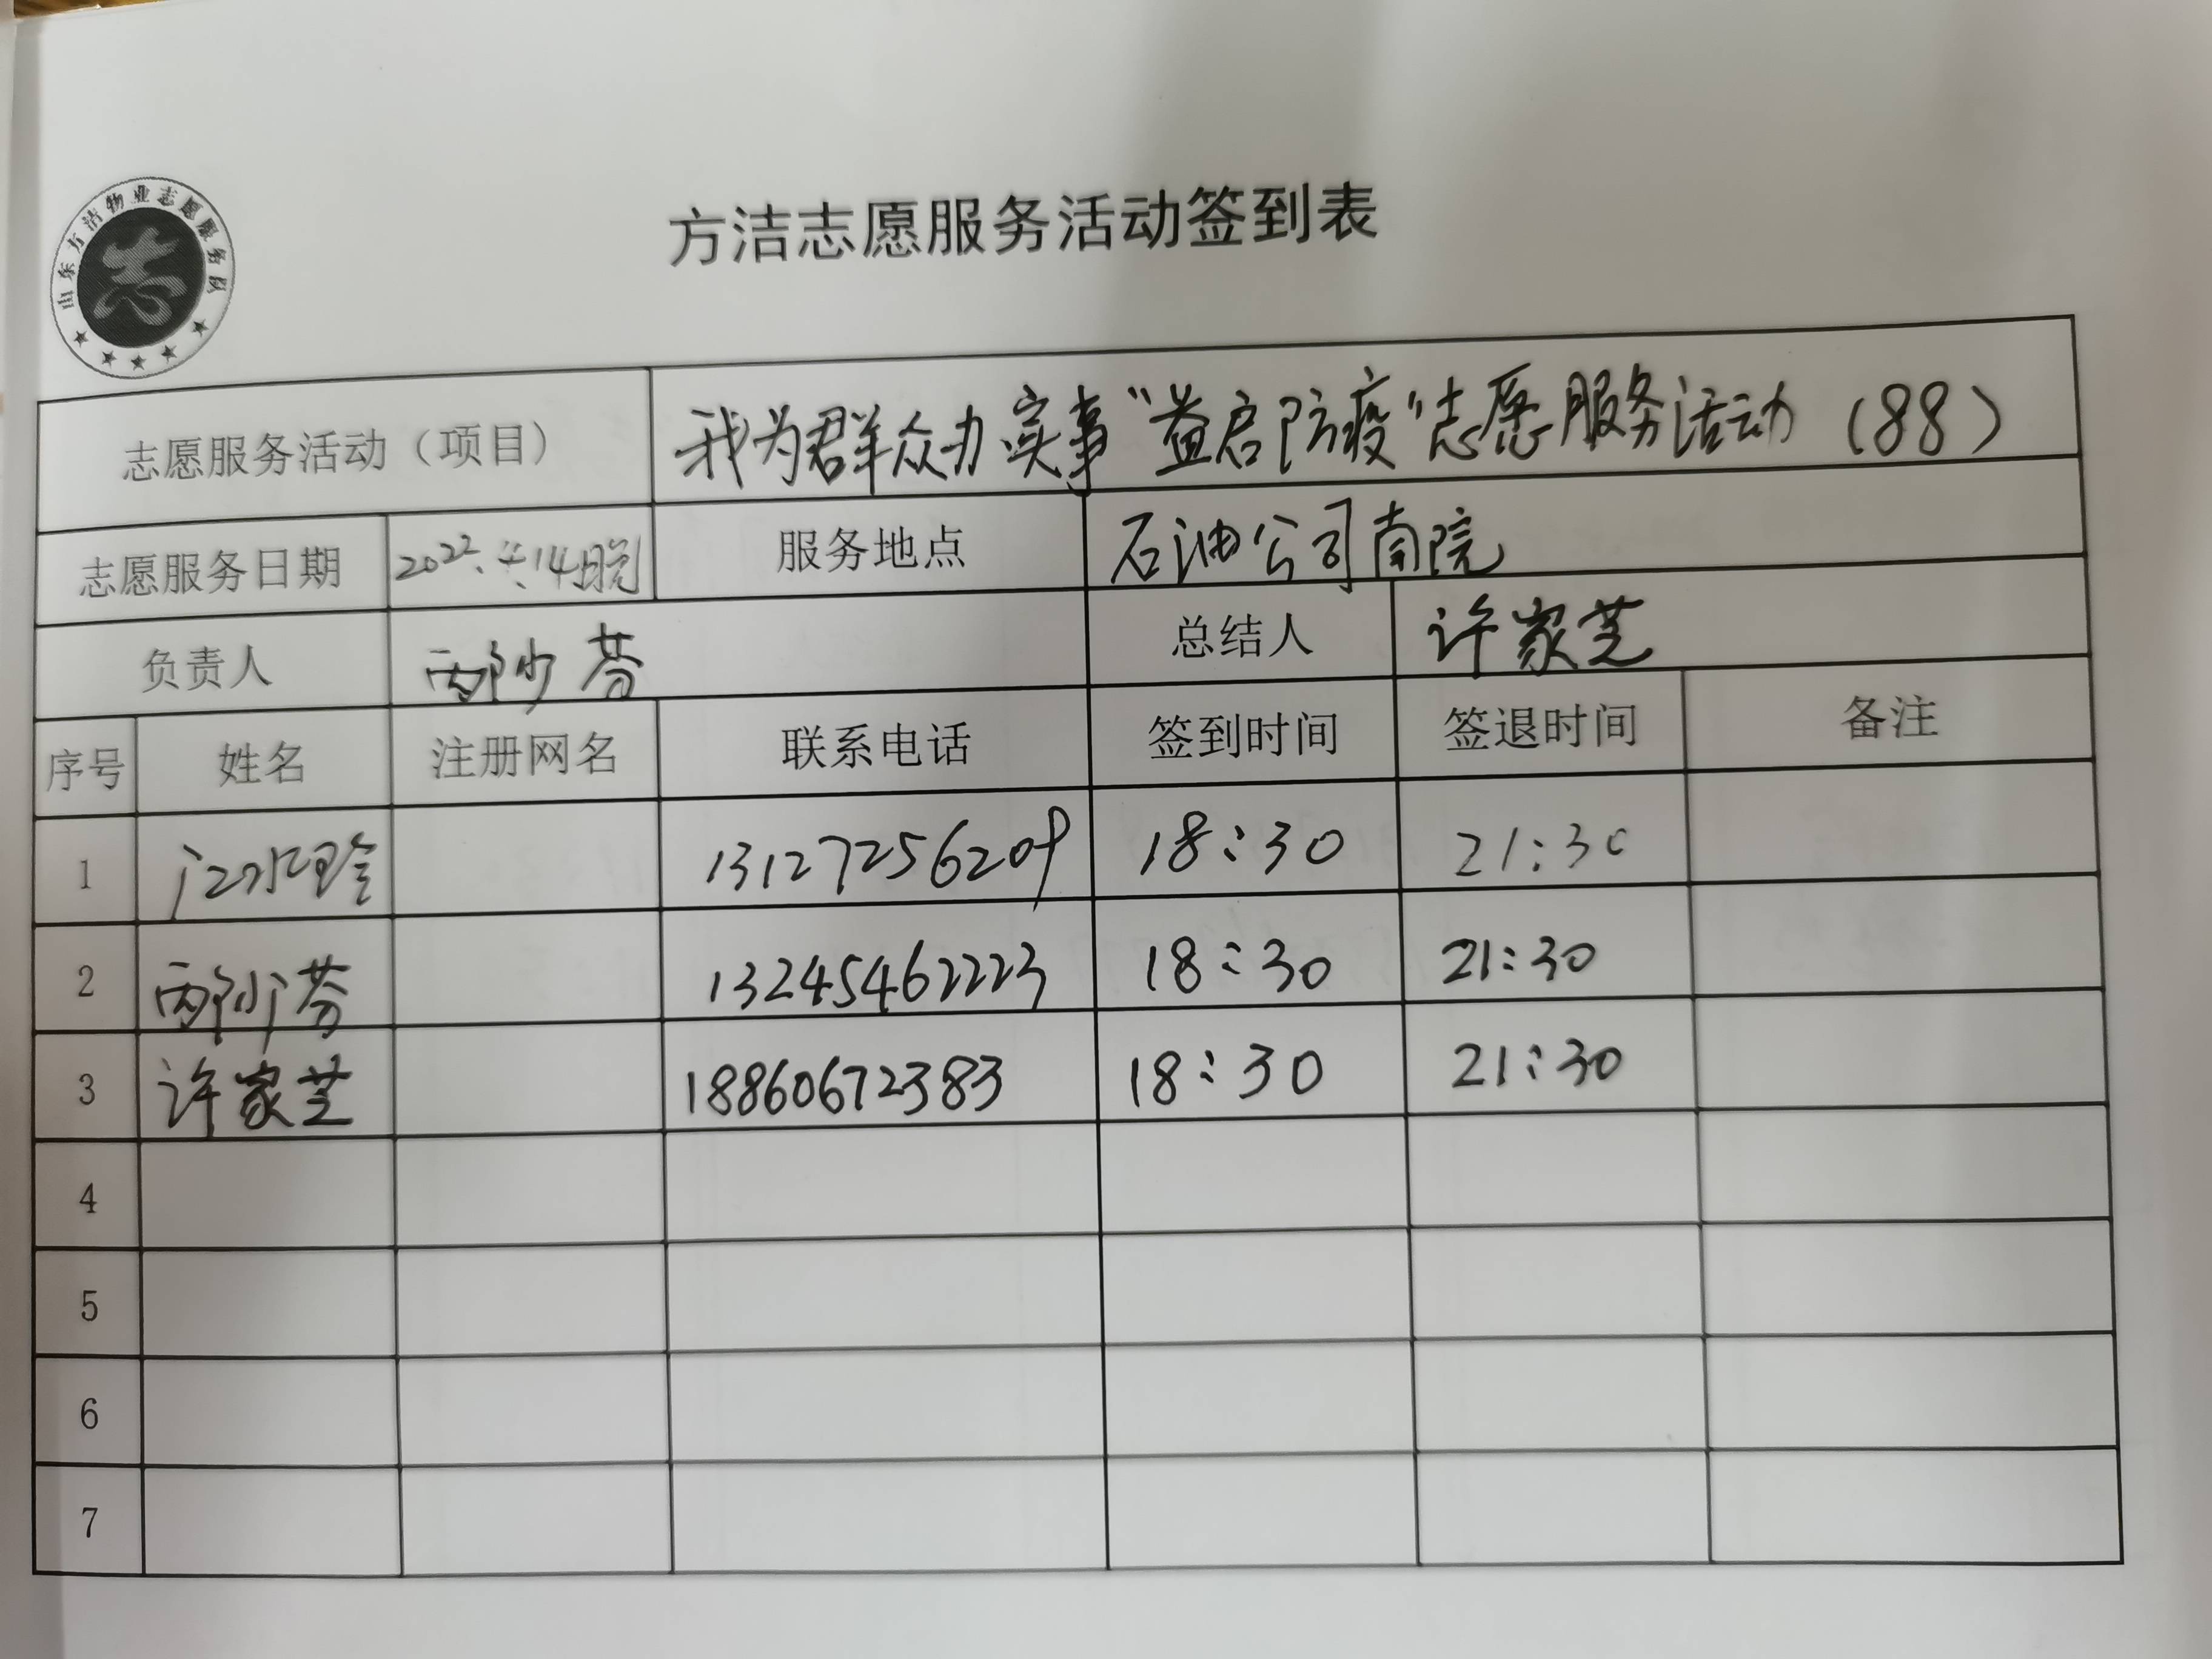 山东方洁物业志愿服务队
志
方洁志愿服务活动签到表
志愿服务活动（项目） 我为群众办实事“益启防疫”志愿服务活动（88）
志愿服务日期 2022.4.14日晚 服务地点 石油公司南院
负责人 邴少芬 总结人 许家芝
序号 姓名 注册网名 联系电话 签到时间 签退时间 备注
1 江水玲 18:30 21:30
2 邴少芬 13245462223 18:30 21:30
3 许家芝 18860672383 18:30 21:30
4
5
6
7